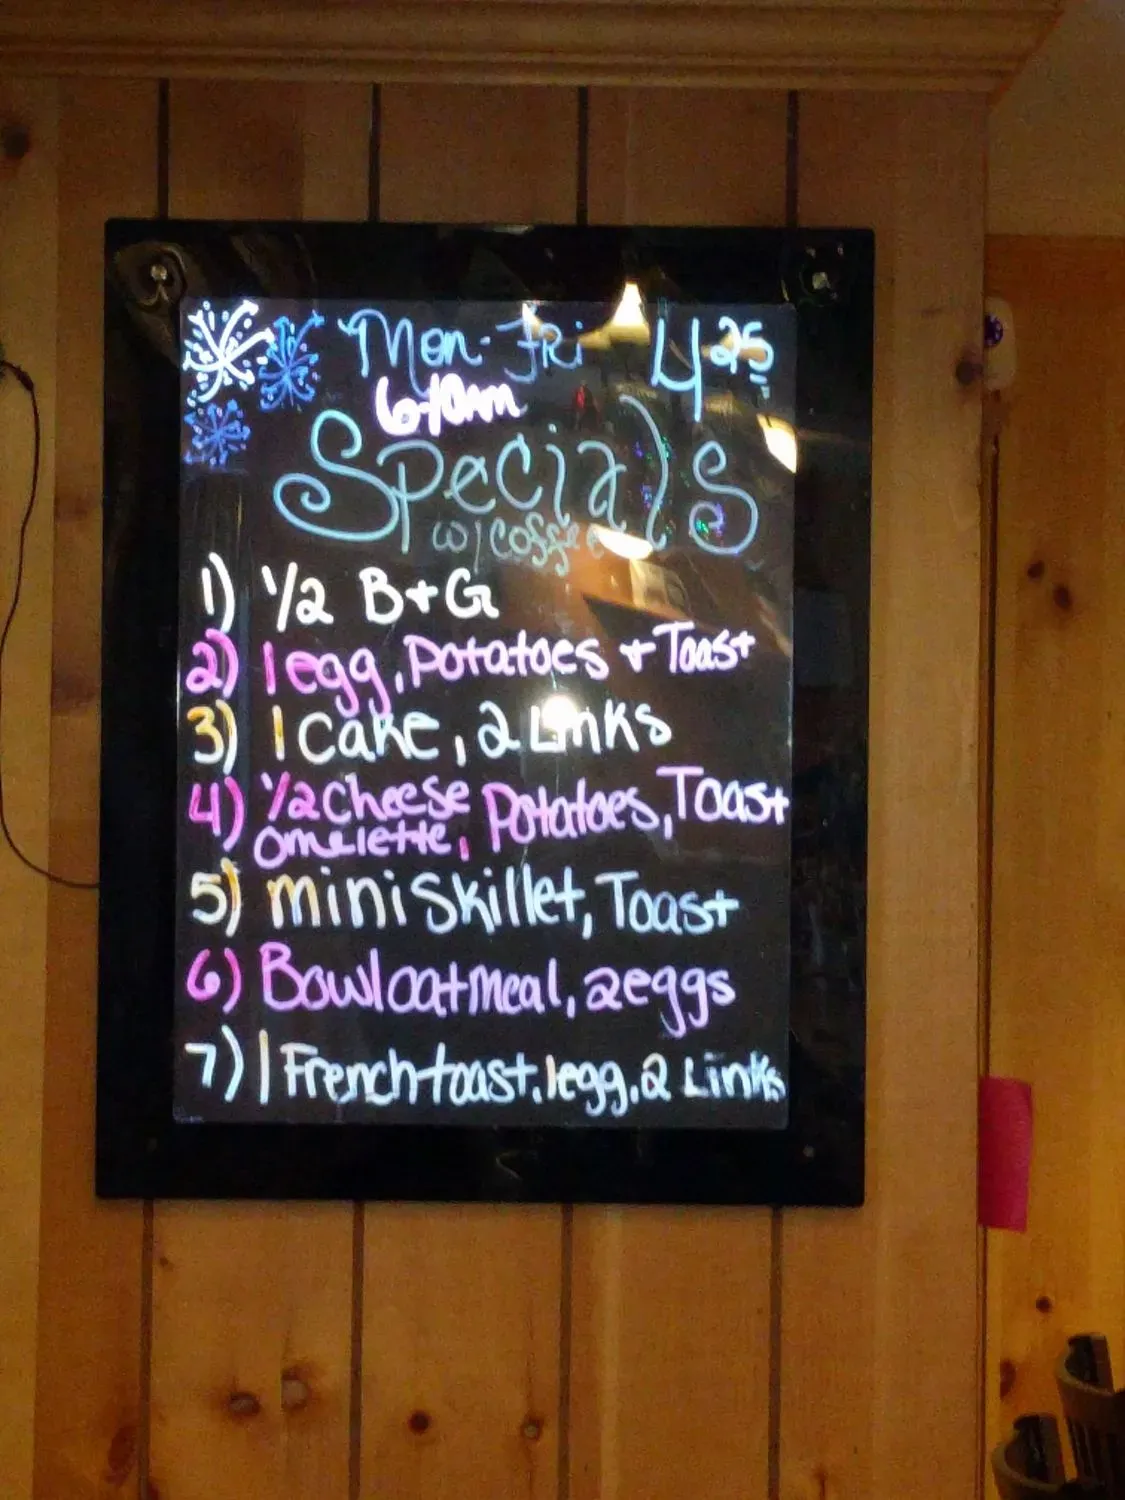 Mon-Fri 4 25
6-10am
Specials
w/ coffee
1) 1/2 B+G
2) 1 egg, Potatoes + Toast
3) 1 Cake, 2 Links
4) 1/2 Cheese
omelette, Potatoes, Toast
5) mini Skillet, Toast
6) Bowl oatmeal, 2 eggs
7) 1 French toast, 1 egg, 2 Links